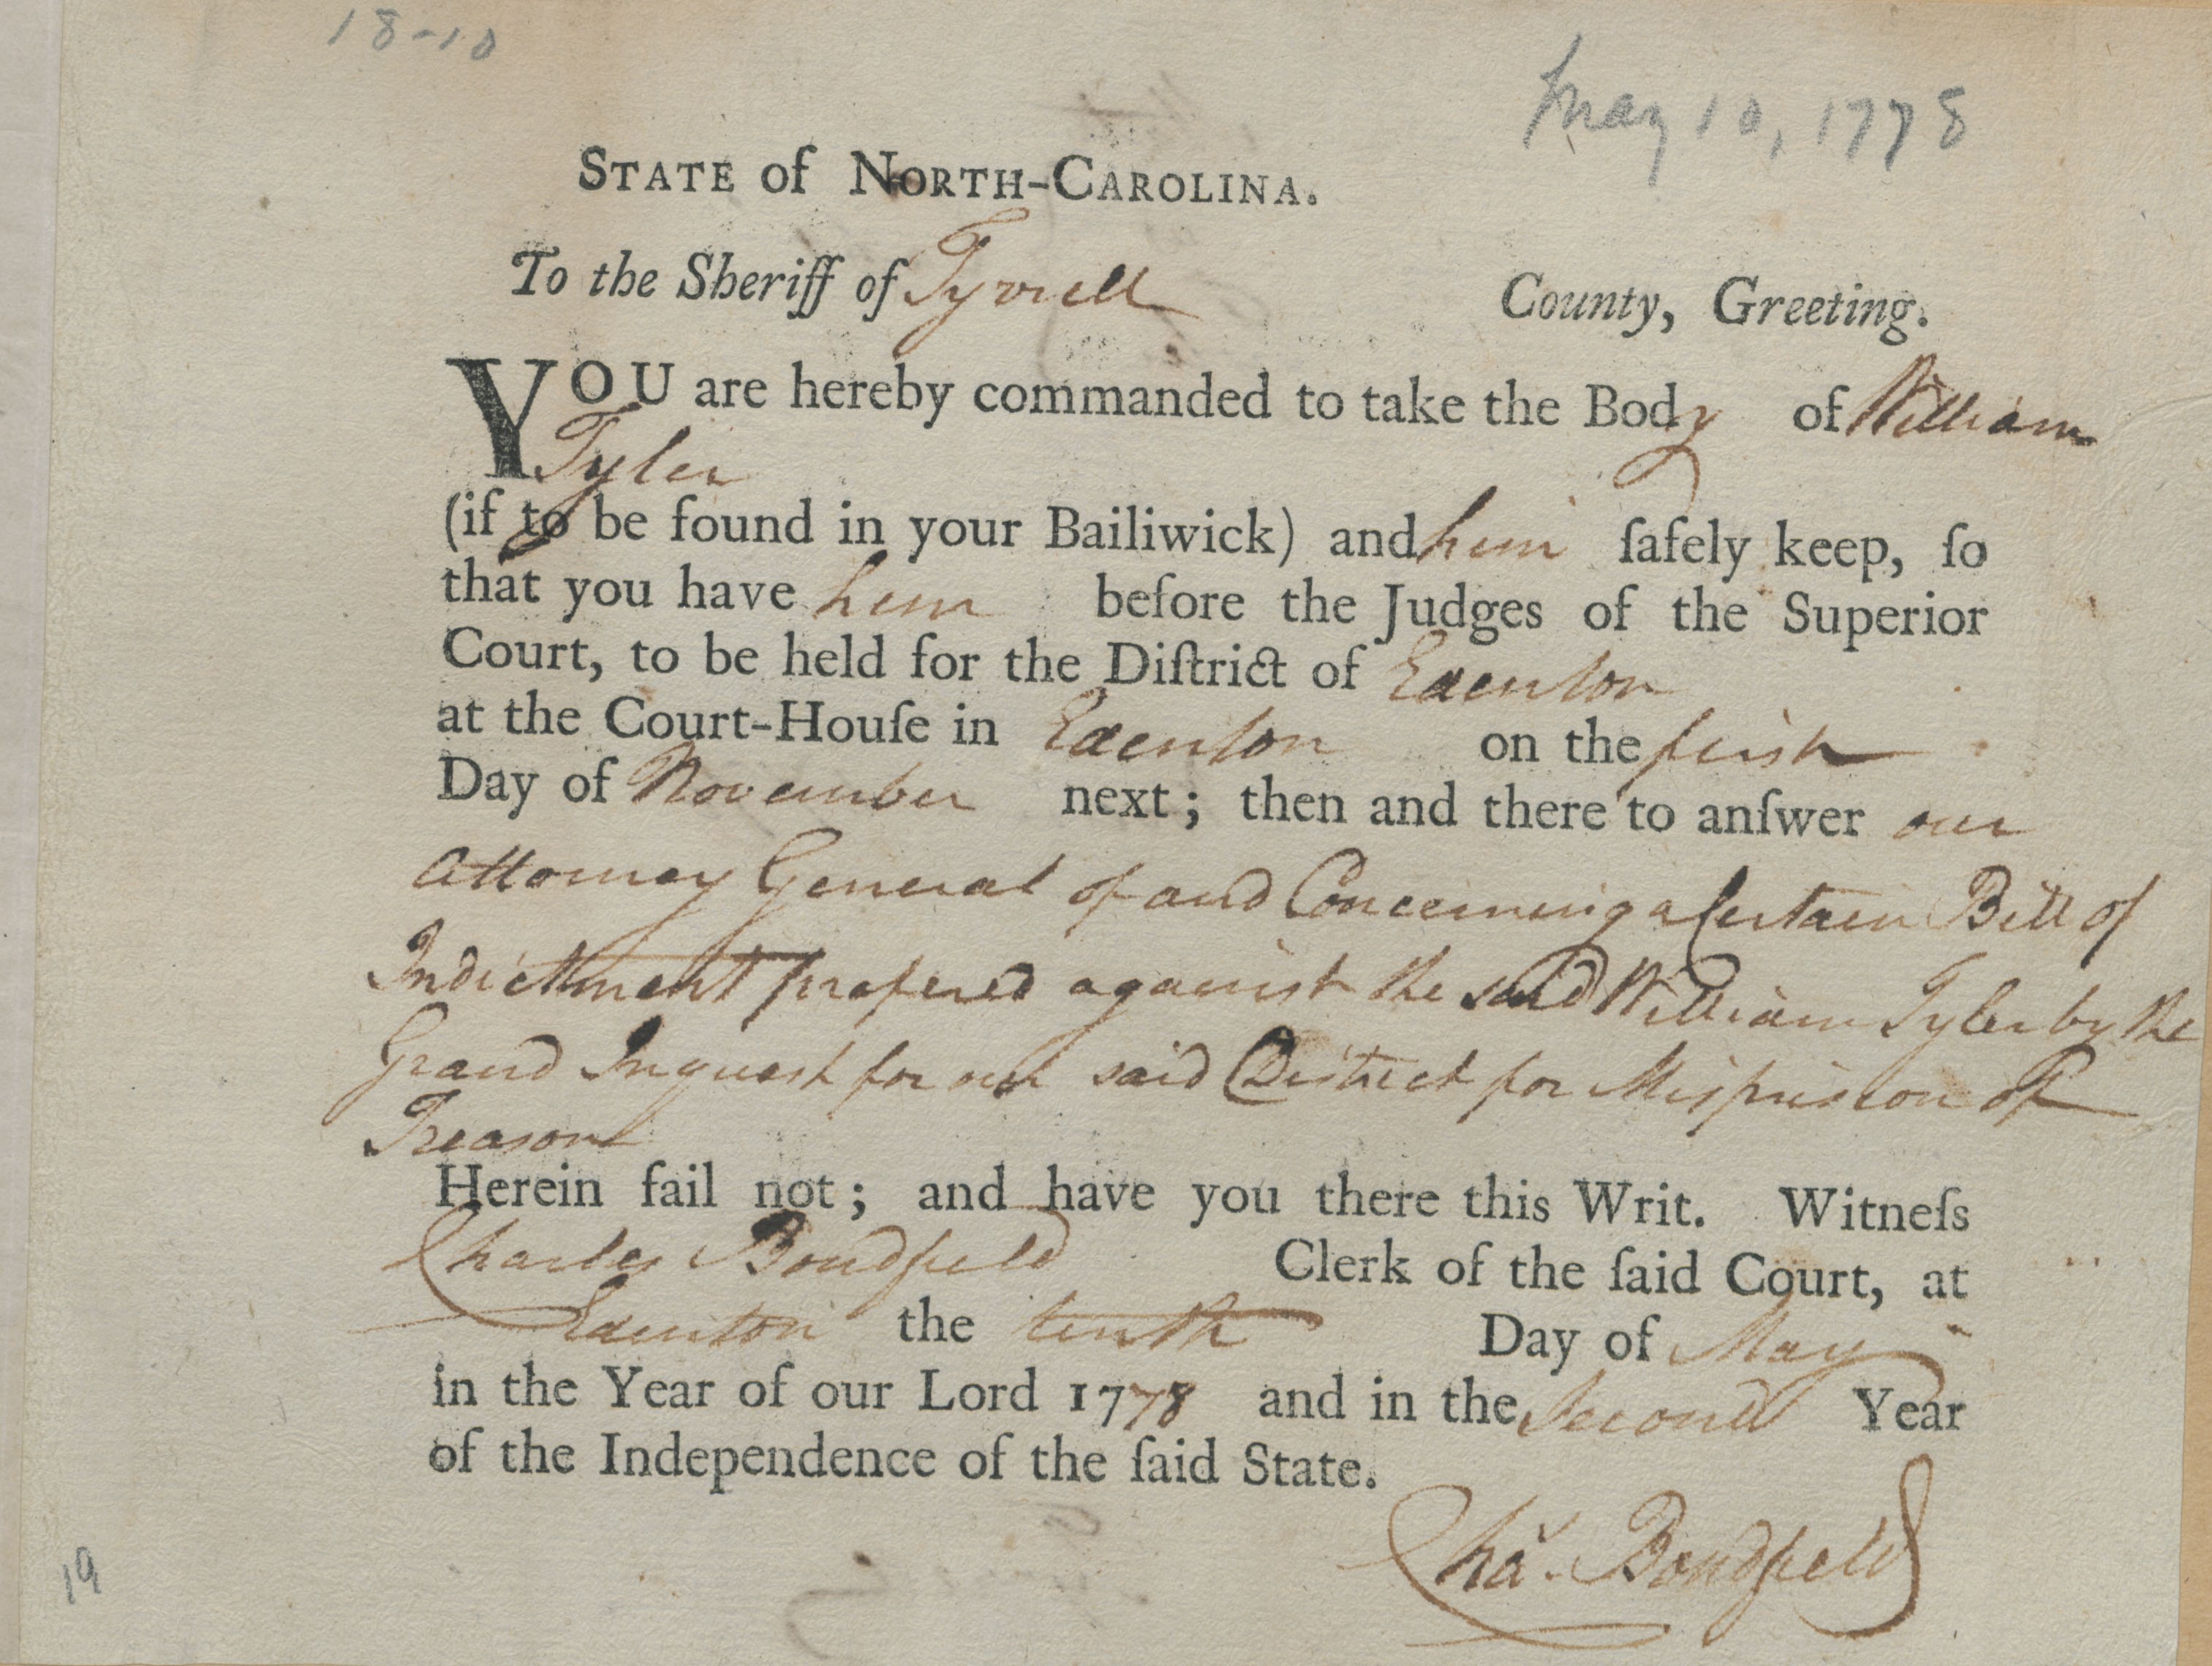 18-10
May 10, 1778
STATE of NORTH-CAROLINA.
To the Sheriff of Tyrrell County, Greeting.
YOU are hereby commanded to take the Body of William
Tyler
(if to be found in your Bailiwick) and him ſafely keep, ſo
that you have him before the Judges of the Superior
Court, to be held for the Diſtrict of Edenton
at the Court-Houſe in Edenton on the first
Day of November next; then and there to anſwer our
Attorney General of and Concerning a Certain Bill of
Indictment prefered against the said William Tyler by the
Grand Inquest for our said District for Misprision of
Treason
Herein fail not; and have you there this Writ. Witneſs
Charles Bondfield Clerk of the ſaid Court, at
Edenton the tenth Day of May
in the Year of our Lord 1778 and in the Second Year
of the Independence of the ſaid State.
Chas. Bondfield
19